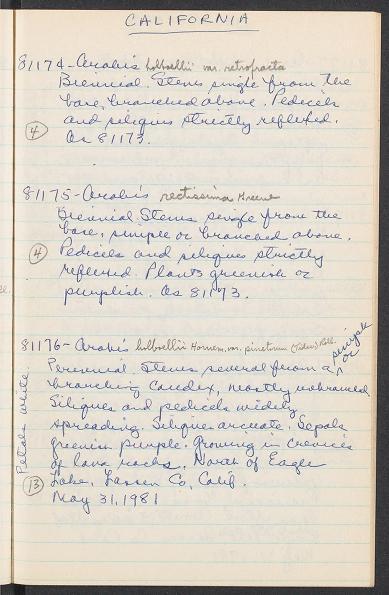 CALIFORNIA
81174- Arabis holboellii var. retrofracta
Biennial. Stems single from the
base, branched above. Pedicels
and siliques strictly reflexed.
4 As 81173.
81175- Arabis rectissima Greene
Biennial. Stems single from the
base, simple or branched above.
4 Pedicels and siliques strictly
reflexed. Plants greenish or
purplish. As 81173.
81176- Arabis holboellii Hornem. var. pinetorum (Tidestr.) Roll.
Perennial. Stems several from a simple or
branching caudex, mostly unbranched.
Siliques and pedicels widely
spreading. Siliques arcuate. Sepals
greenish purple. Growing in crevices
of lava rocks. North of Eagle
13 Lake, Lassen Co, Calif.
May 31, 1981
Petals white.